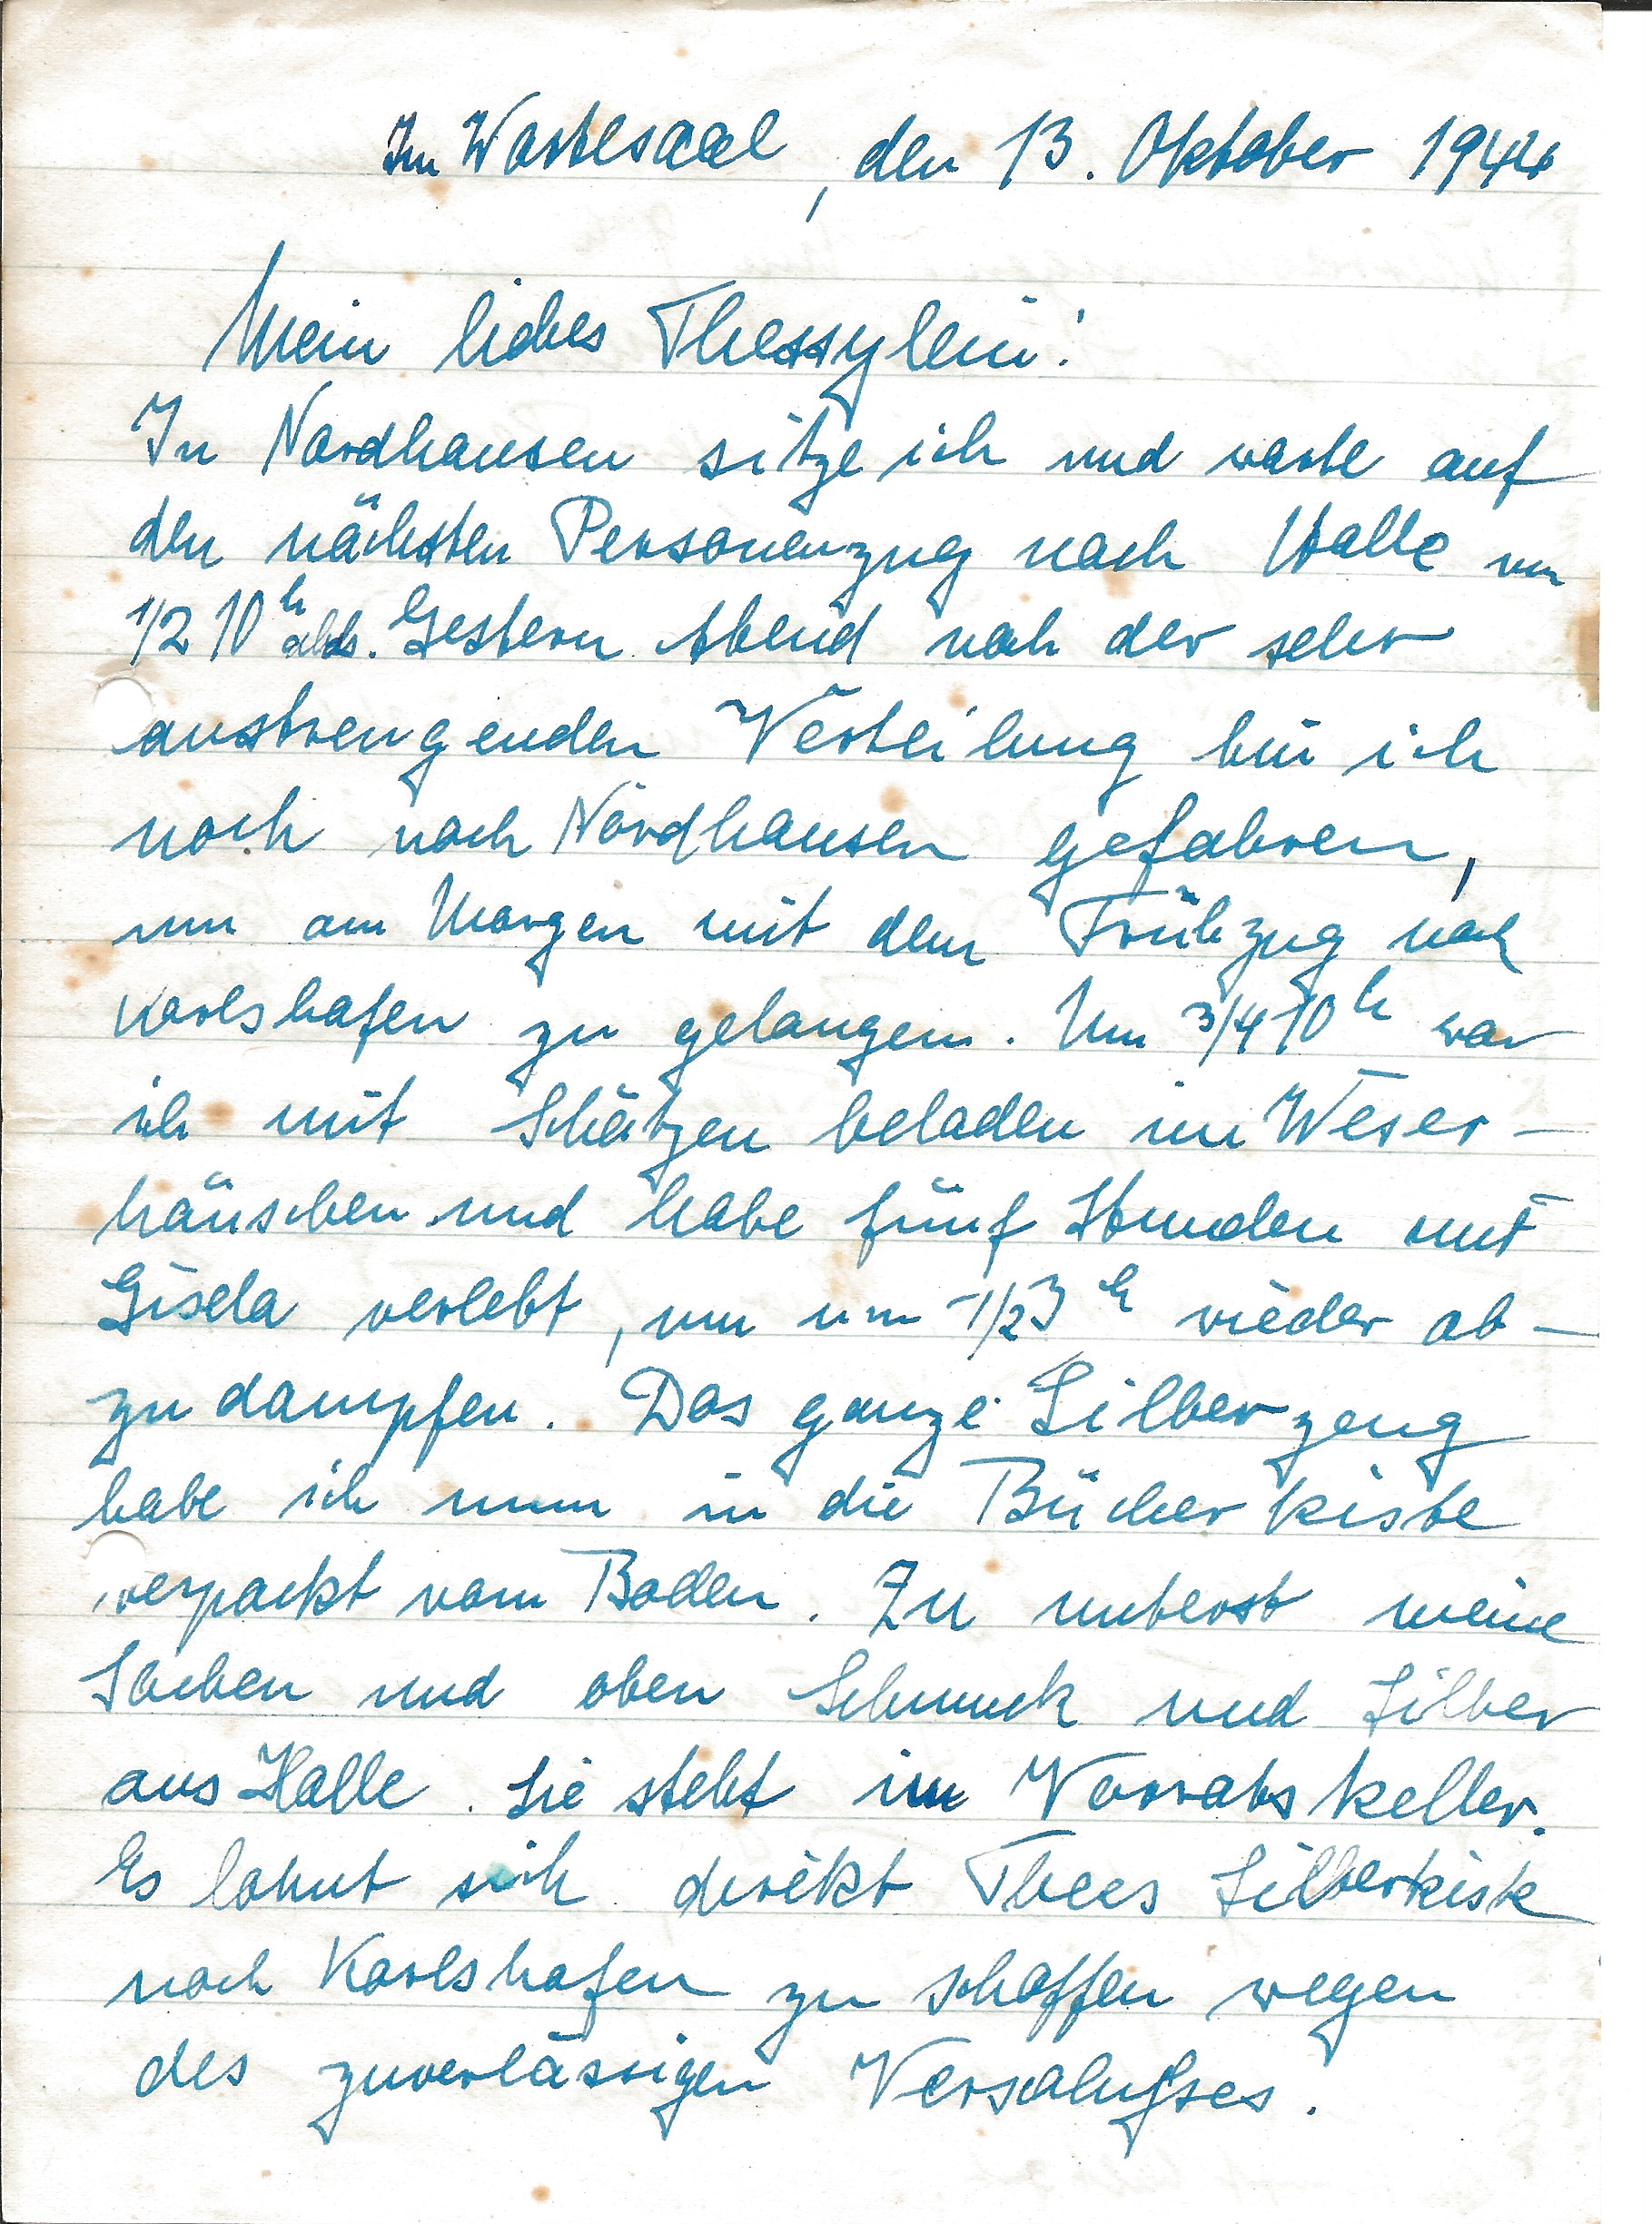 Im Wartesaal, den 13. Oktober 1944
Mein liebes Thessylein!
In Nordhausen sitze ich und warte auf
den nächsten Personenzug nach Halle um
1/2 10h abds. Gestern Abend nach der sehr
anstrengenden Verteilung bin ich
noch nach Nordhausen gefahren,
um am Morgen mit dem Frühzug nach
Karlshafen zu gelangen. Um 3/4 10h war
ich mit Schätzen beladen im Weser-
häuschen und habe fünf Stunden mit
Gisela verlebt, um um 1/2 3h wieder ab-
zudampfen. Das ganze Silberzeug
habe ich nun in die Bücherkiste
verpackt vom Boden. Zu unterst meine
Sachen und oben Schmuck und Silber
aus Halle. Sie steht im Vorratskeller.
Es lohnt sich direkt Thees Silberkiste
nach Karlshafen zu schaffen wegen
des zuverlässigen